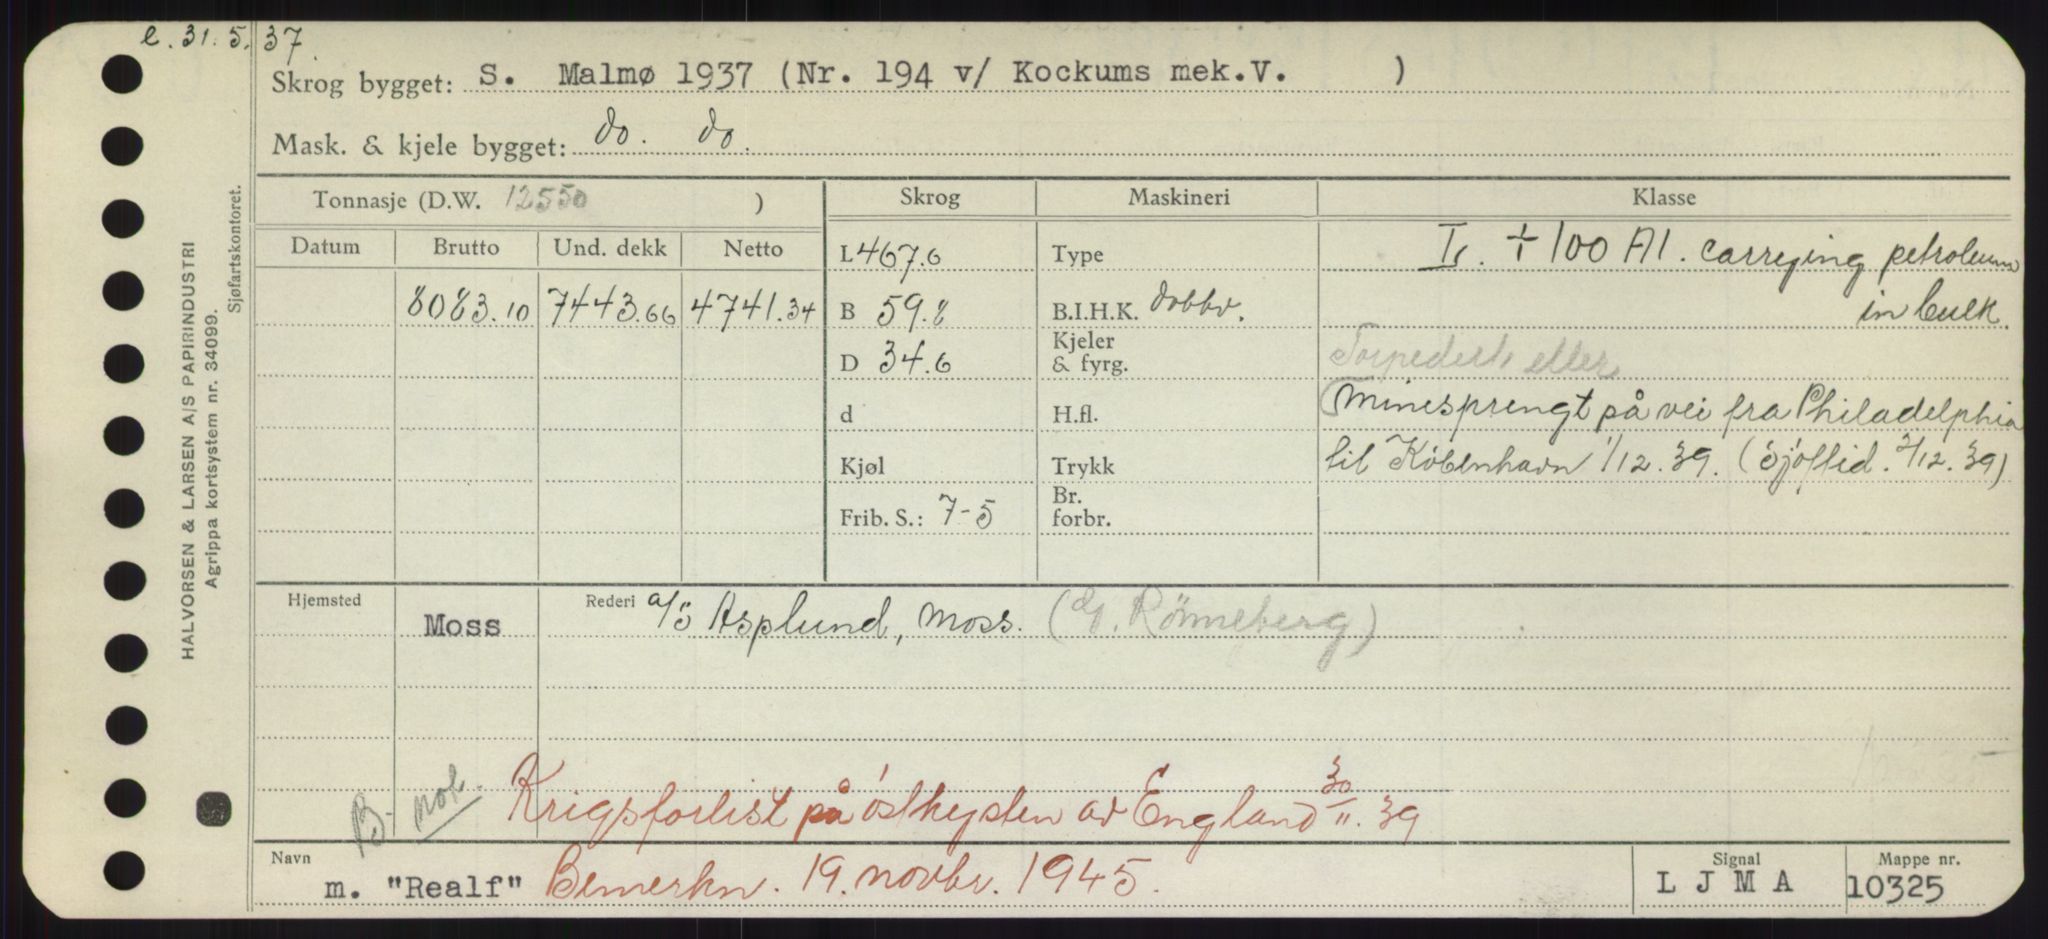 e. 31. 5. 37.
Skrog bygget: S. Malmø 1937 (Nr. 194 v/ Kockums mek.V. )
Mask. & kjele bygget: do. do.
Tonnasje (D.W. 12550 ) Skrog Maskineri Klasse
Datum Brutto Und. dekk Netto L 467.6 Type Ls. + 100 A1. carrying petroleum
8083.10 7443.66 4741.34 B 59.8 B.I.H.K. dobbv. in bulk.
D 34.6 Kjeler & fyrg. Torpedert eller
d H.fl. Minesprengt på vei fra Philadelphia
Kjøl Trykk til København 1/12.39. (Sjøftid. 2/12.39)
Frib. S.: 7-5 Br. forbr.
Hjemsted Moss Rederi a/s Asplund, Moss. (Rönneberg)
B not. Krigsforlist på østkysten av England 30/11.39
Navn m. "Realf" Bemerkn. 19. novbr. 1945.
Signal L J M A
Mappe nr. 10325
HALVORSEN & LARSEN A/S PAPIRINDUSTRI
Agrippa kortsystem nr. 34099.
Sjøfartskontoret.